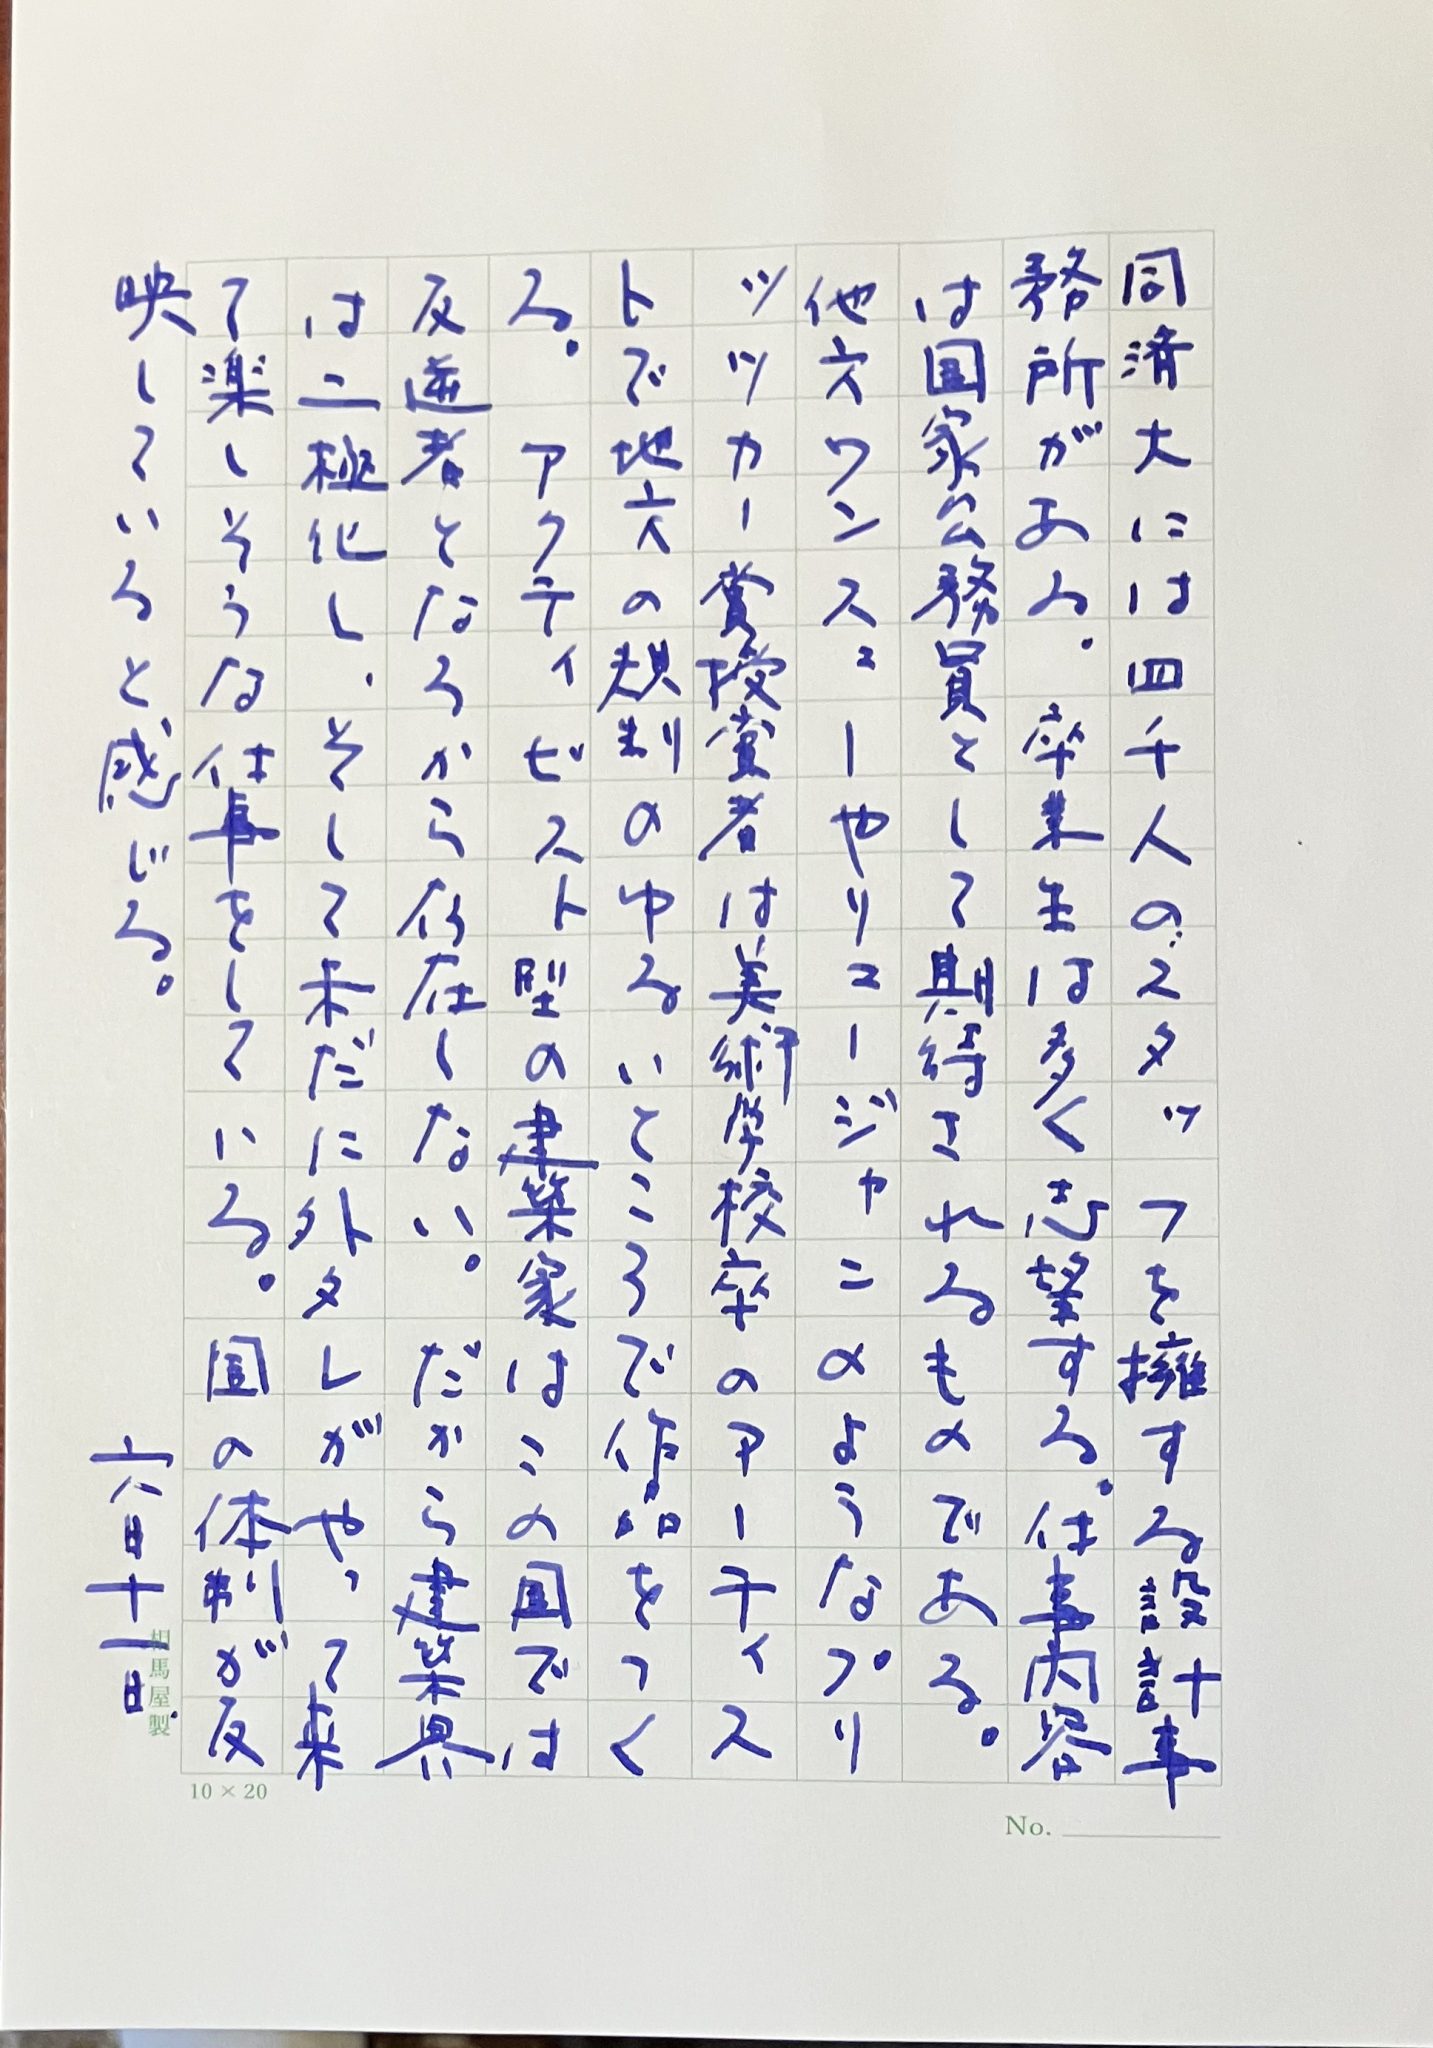 同済大には四千人のスタッフを擁する設計事
務所がある。卒業生は多く志望する。仕事内容
は国家公務員として期待されるものである。
他方ワンスューやリュージャニのようなプリ
ツツカー賞授賞者は美術学校卒のアーティス
トで地方の規制のゆるいところで作品をつく
る。アクティビスト型の建築家はこの国では
反逆者となろから存在しない。だから建築界
は二極化し、そして未だに外タレがやって来
て楽しそうな仕事をしている。国の体制が反
映していると感じる。
六月十一日
相馬屋製
10×20
No.